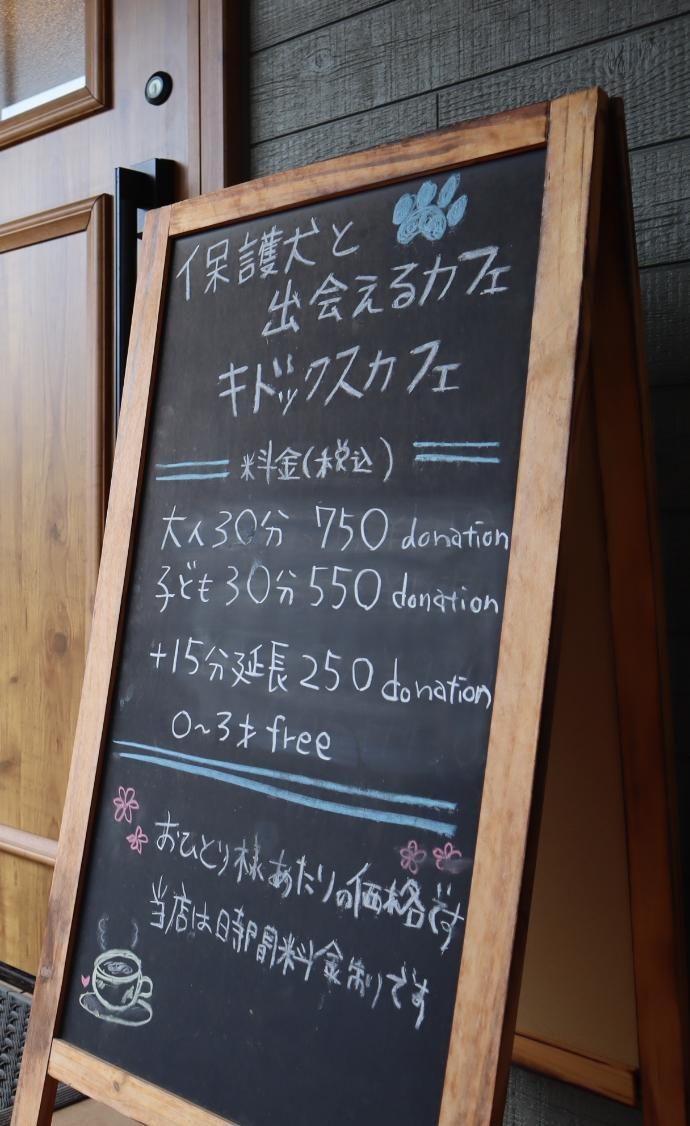 保護犬と
出会えるカフェ
キドックスカフェ
料金(税込)
大人30分 750 donation
子ども30分 550 donation
+15分延長 250 donation
0~3才 free
おひとり様あたりの価格です
当店は時間料金制です